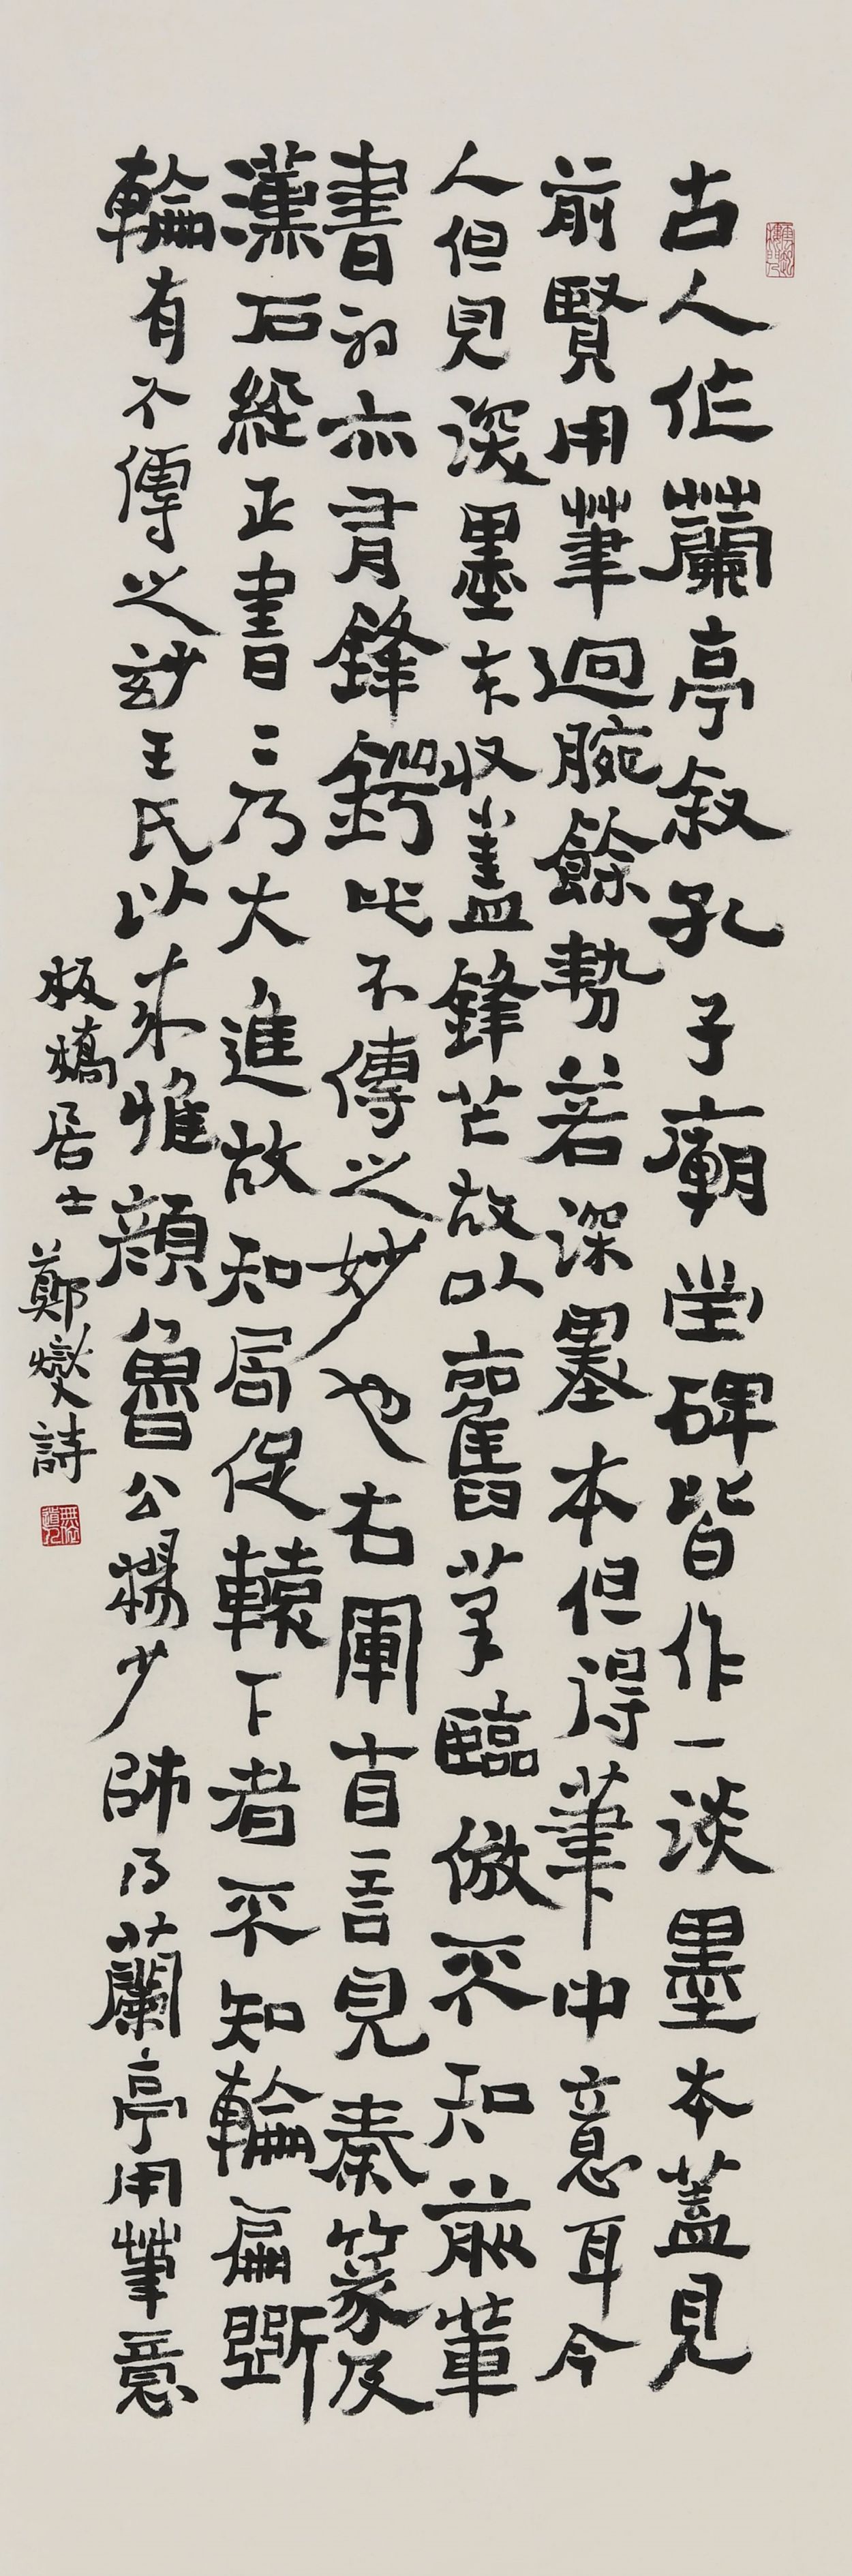 古人作蘭亭叙孔子廟堂碑皆作一淡墨本蓋見
前賢用筆迴腕餘勢若深墨本但得筆中意耳今
人但見深墨本收蓋鋒芒故以舊筆臨倣不知前輩
書初亦有鋒鍔此不傳之妙也右軍自言見秦篆及
漢石經正書書乃大進故知局促轅下者不知輪扁斲
輪有不傳之妙王氏以來惟顏魯公楊少師得蘭亭用筆意
板橋居士鄭燮詩